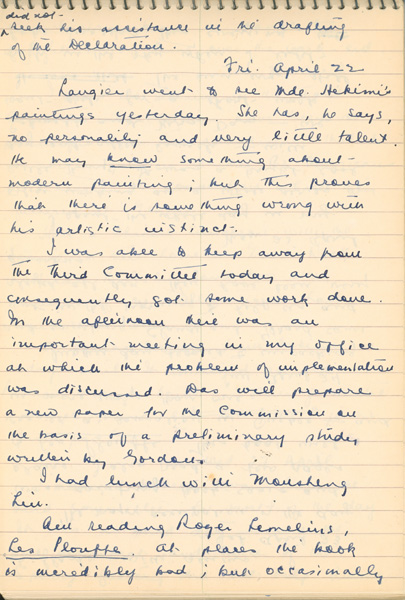 did not
seek his assistance in the drafting
of the Declaration.
Fri. April 22
Laugier went to see Mde. Hekimi's
paintings yesterday. She has, he says,
no personality and very little talent.
He may know something about
modern painting; but this proves
that there is something wrong with
his artistic instinct.
I was able to keep away from
the Third Committee today and
consequently got some work done.
In the afternoon there was an
important meeting in my office
at which the problem of implementation
was discussed. Das will prepare
a new paper for the Commission on
the basis of a preliminary study
written by Gordon.
I had lunch with Mousheng
Lin.
Am reading Roger Lemelins,
Les Plouffe. At places the book
is incredibly bad; but occasionally